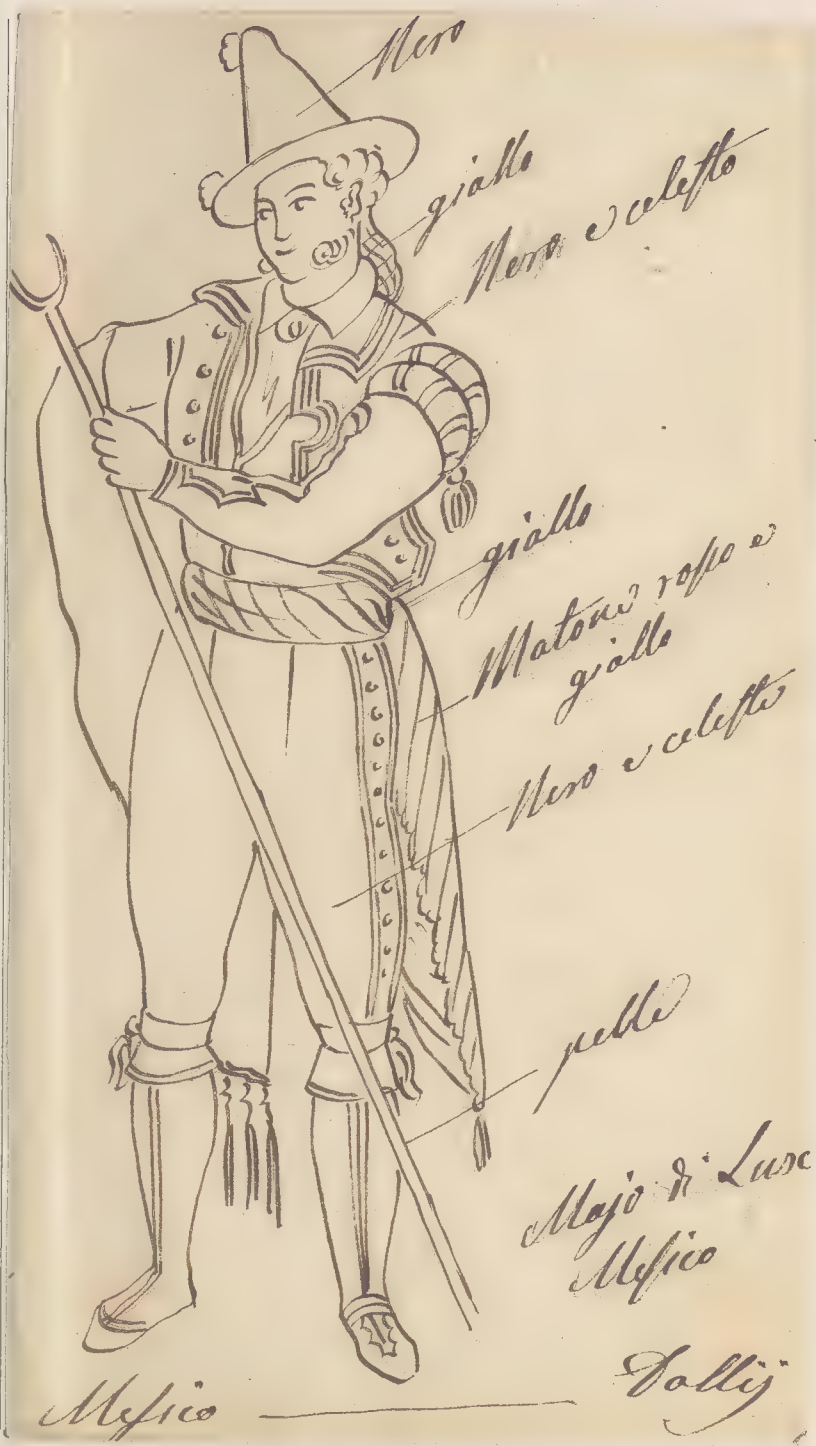 Nero
giallo
Nero e celeste
giallo
Matone rosso e
giallo
Nero e celeste
pelle
Majo di
Messico
Messico